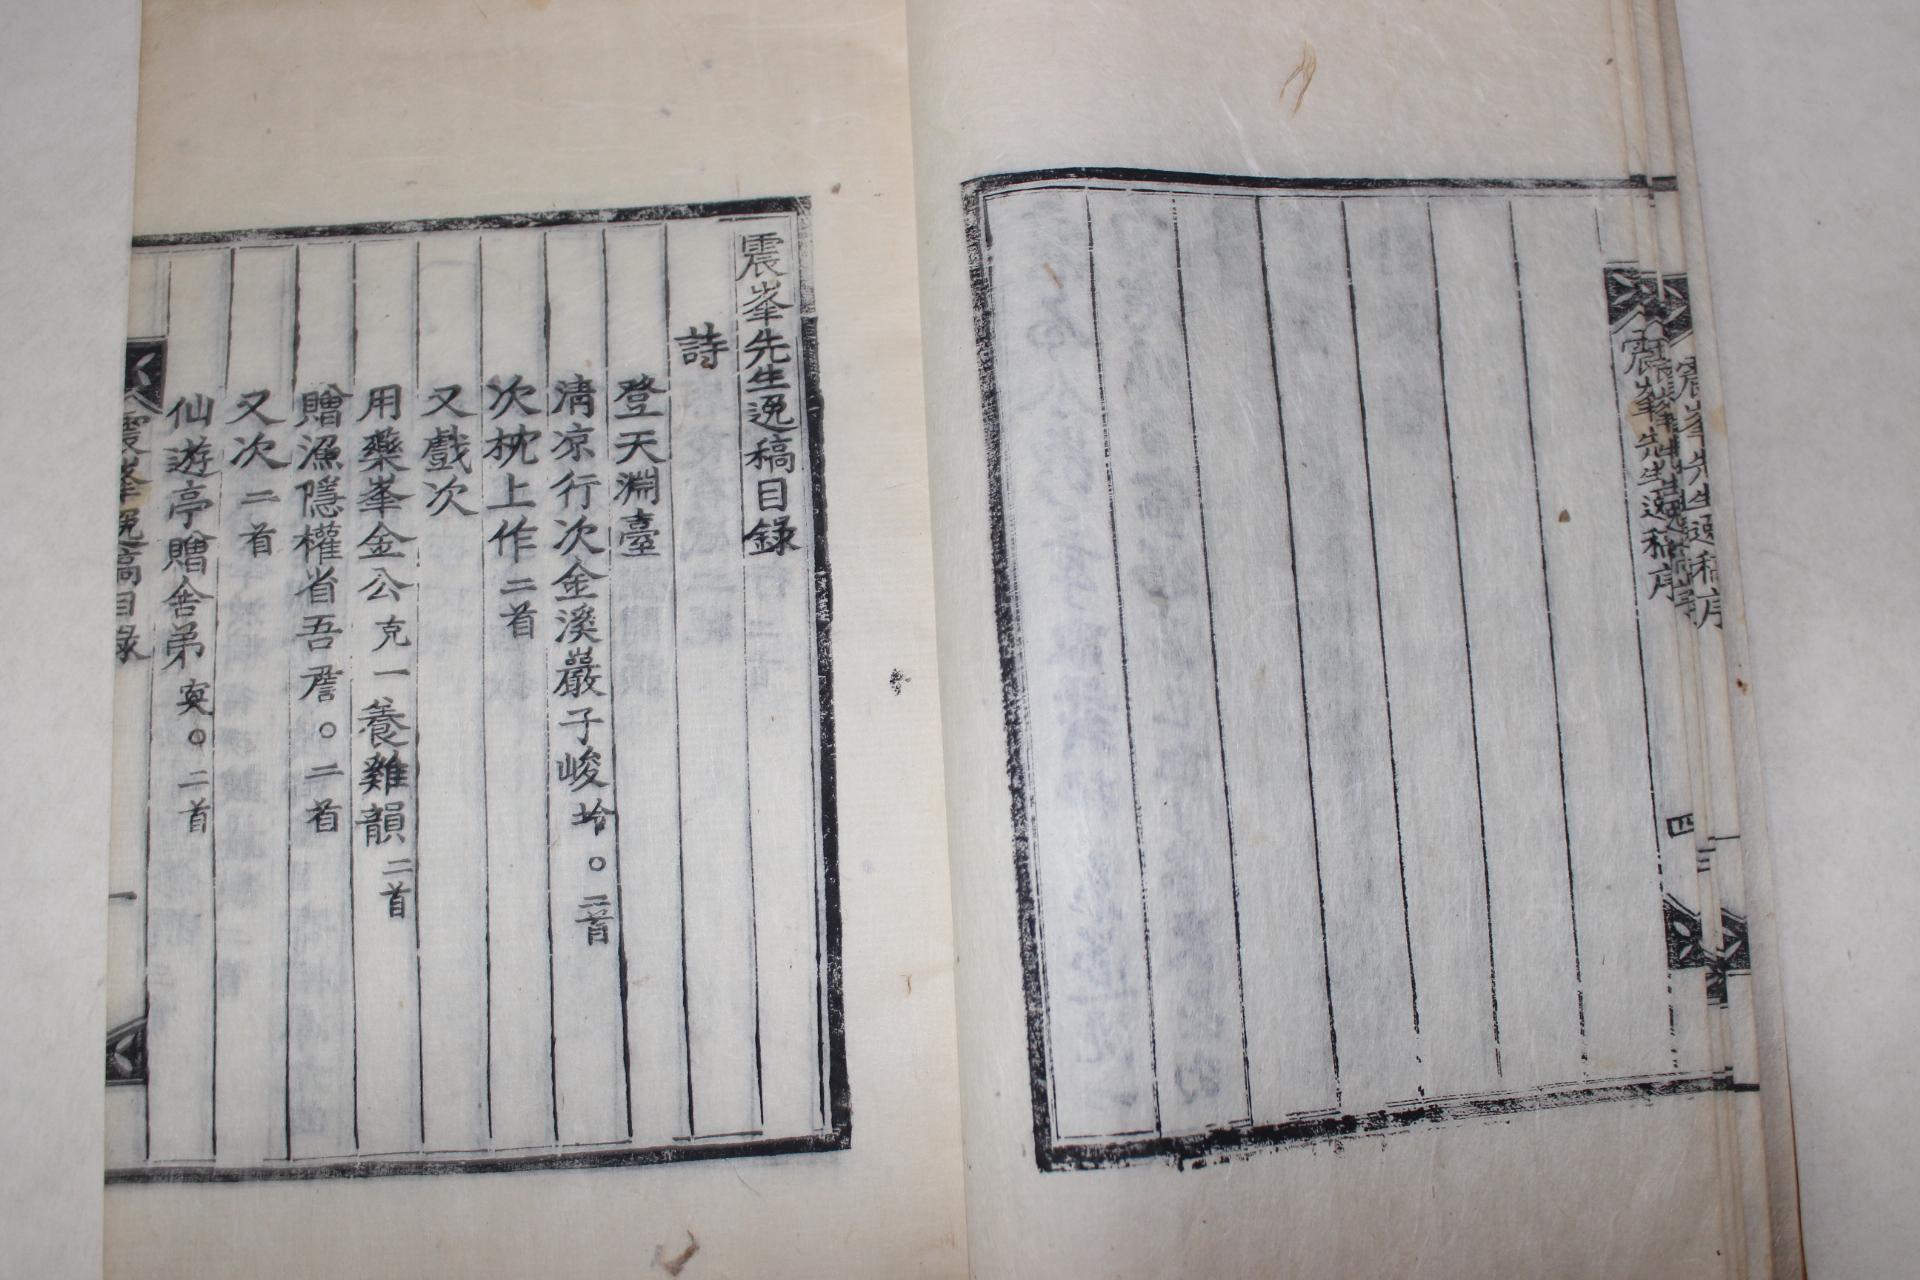 震峯先生逸稿序
四
震峯先生逸稿序
三
震峯先生逸稿目錄
詩
登天淵臺
淸凉行次金溪巖子峻坽○二首
次枕上作二首
又戲次
用藥峯金公克一養雞韻二首
贈漁隱權省吾詹○二首
又次二首
仙遊亭贈舍弟㝚○二首
震峯逸稿目錄
一